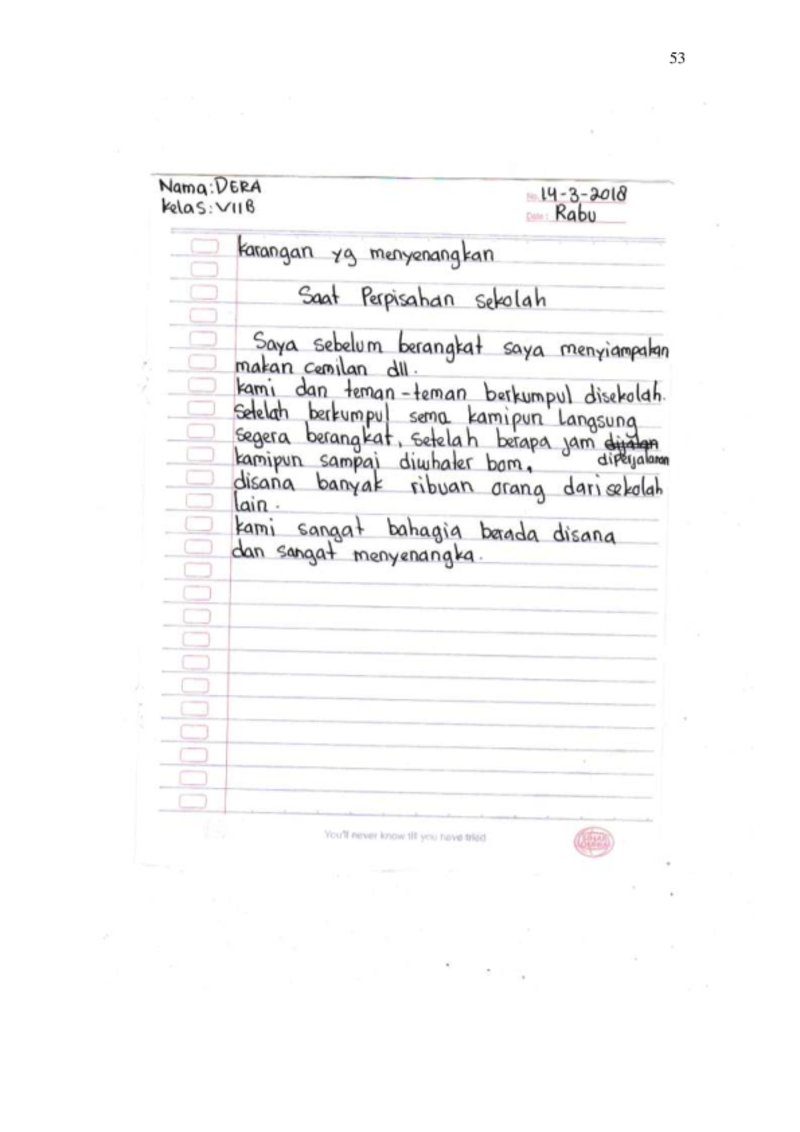 53
Nama: DERA
Kelas: VIIB
No. 14-3-2018
Date: Rabu
karangan yg menyenangkan
Saat Perpisahan sekolah
Saya sebelum berangkat saya menyiampakan
makan cemilan dll.
kami dan teman-teman berkumpul disekolah.
Setelah berkumpul sema kamipun Langsung
segera berangkat, setelah berapa jam dijalan
diperjalanan
kamipun sampai diwhaler bom,
disana banyak ribuan orang dari sekolah
lain.
kami sangat bahagia berada disana
dan sangat menyenangka.
You'll never know till you have tried